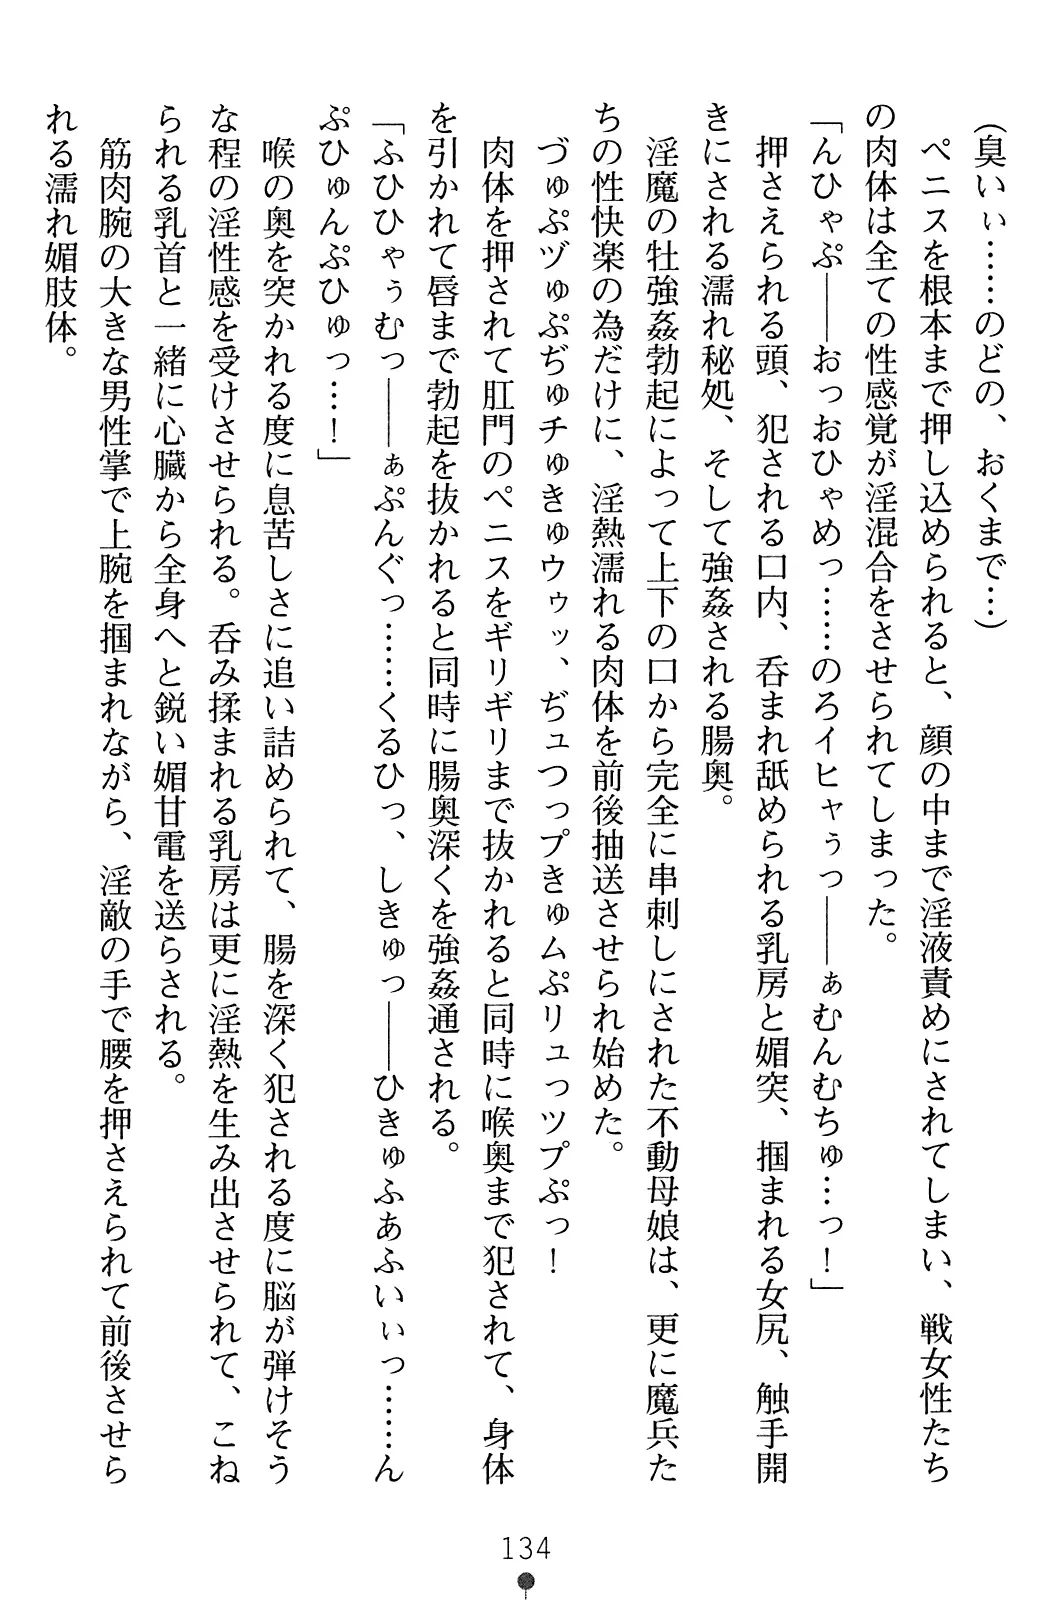 (臭いぃ……のどの、おくまで…)
ペニスを根本まで押し込められると、顔の中まで淫液責めにされてしまい、戦女性たち
の肉体は全ての性感覚が淫混合をさせられてしまった。
「んひゃぷ――おっおひゃめっ……のろイヒャぅっ――ぁむんむちゅ…っ！」
押さえられる頭、犯される口内、呑まれ舐められる乳房と媚突、掴まれる女尻、触手開
きにされる濡れ秘処、そして強姦される腸奥。
淫魔の牡強姦勃起によって上下の口から完全に串刺しにされた不動母娘は、更に魔兵た
ちの性快楽の為だけに、淫熱濡れる肉体を前後抽送させられ始めた。
づゅぷヅゅぷぢゅチゅきゅウゥッ、ぢュつっプきゅムぷリュっツプぷっ！
肉体を押されて肛門のペニスをギリギリまで抜かれると同時に喉奥まで犯されて、身体
を引かれて唇まで勃起を抜かれると同時に腸奥深くを強姦通される。
「ふひひゃぅむっ――ぁぷんぐっ……くるひっ、しきゅっ――ひきゅふあふいぃっ……ん
ぷひゅんぷひゅっ…！」
喉の奥を突かれる度に息苦しさに追い詰められて、腸を深く犯される度に脳が弾けそう
な程の淫性感を受けさせられる。呑み揉まれる乳房は更に淫熱を生み出させられて、こね
られる乳首と一緒に心臓から全身へと鋭い媚甘電を送らされる。
筋肉腕の大きな男性掌で上腕を掴まれながら、淫敵の手で腰を押さえられて前後させら
れる濡れ媚肢体。
134